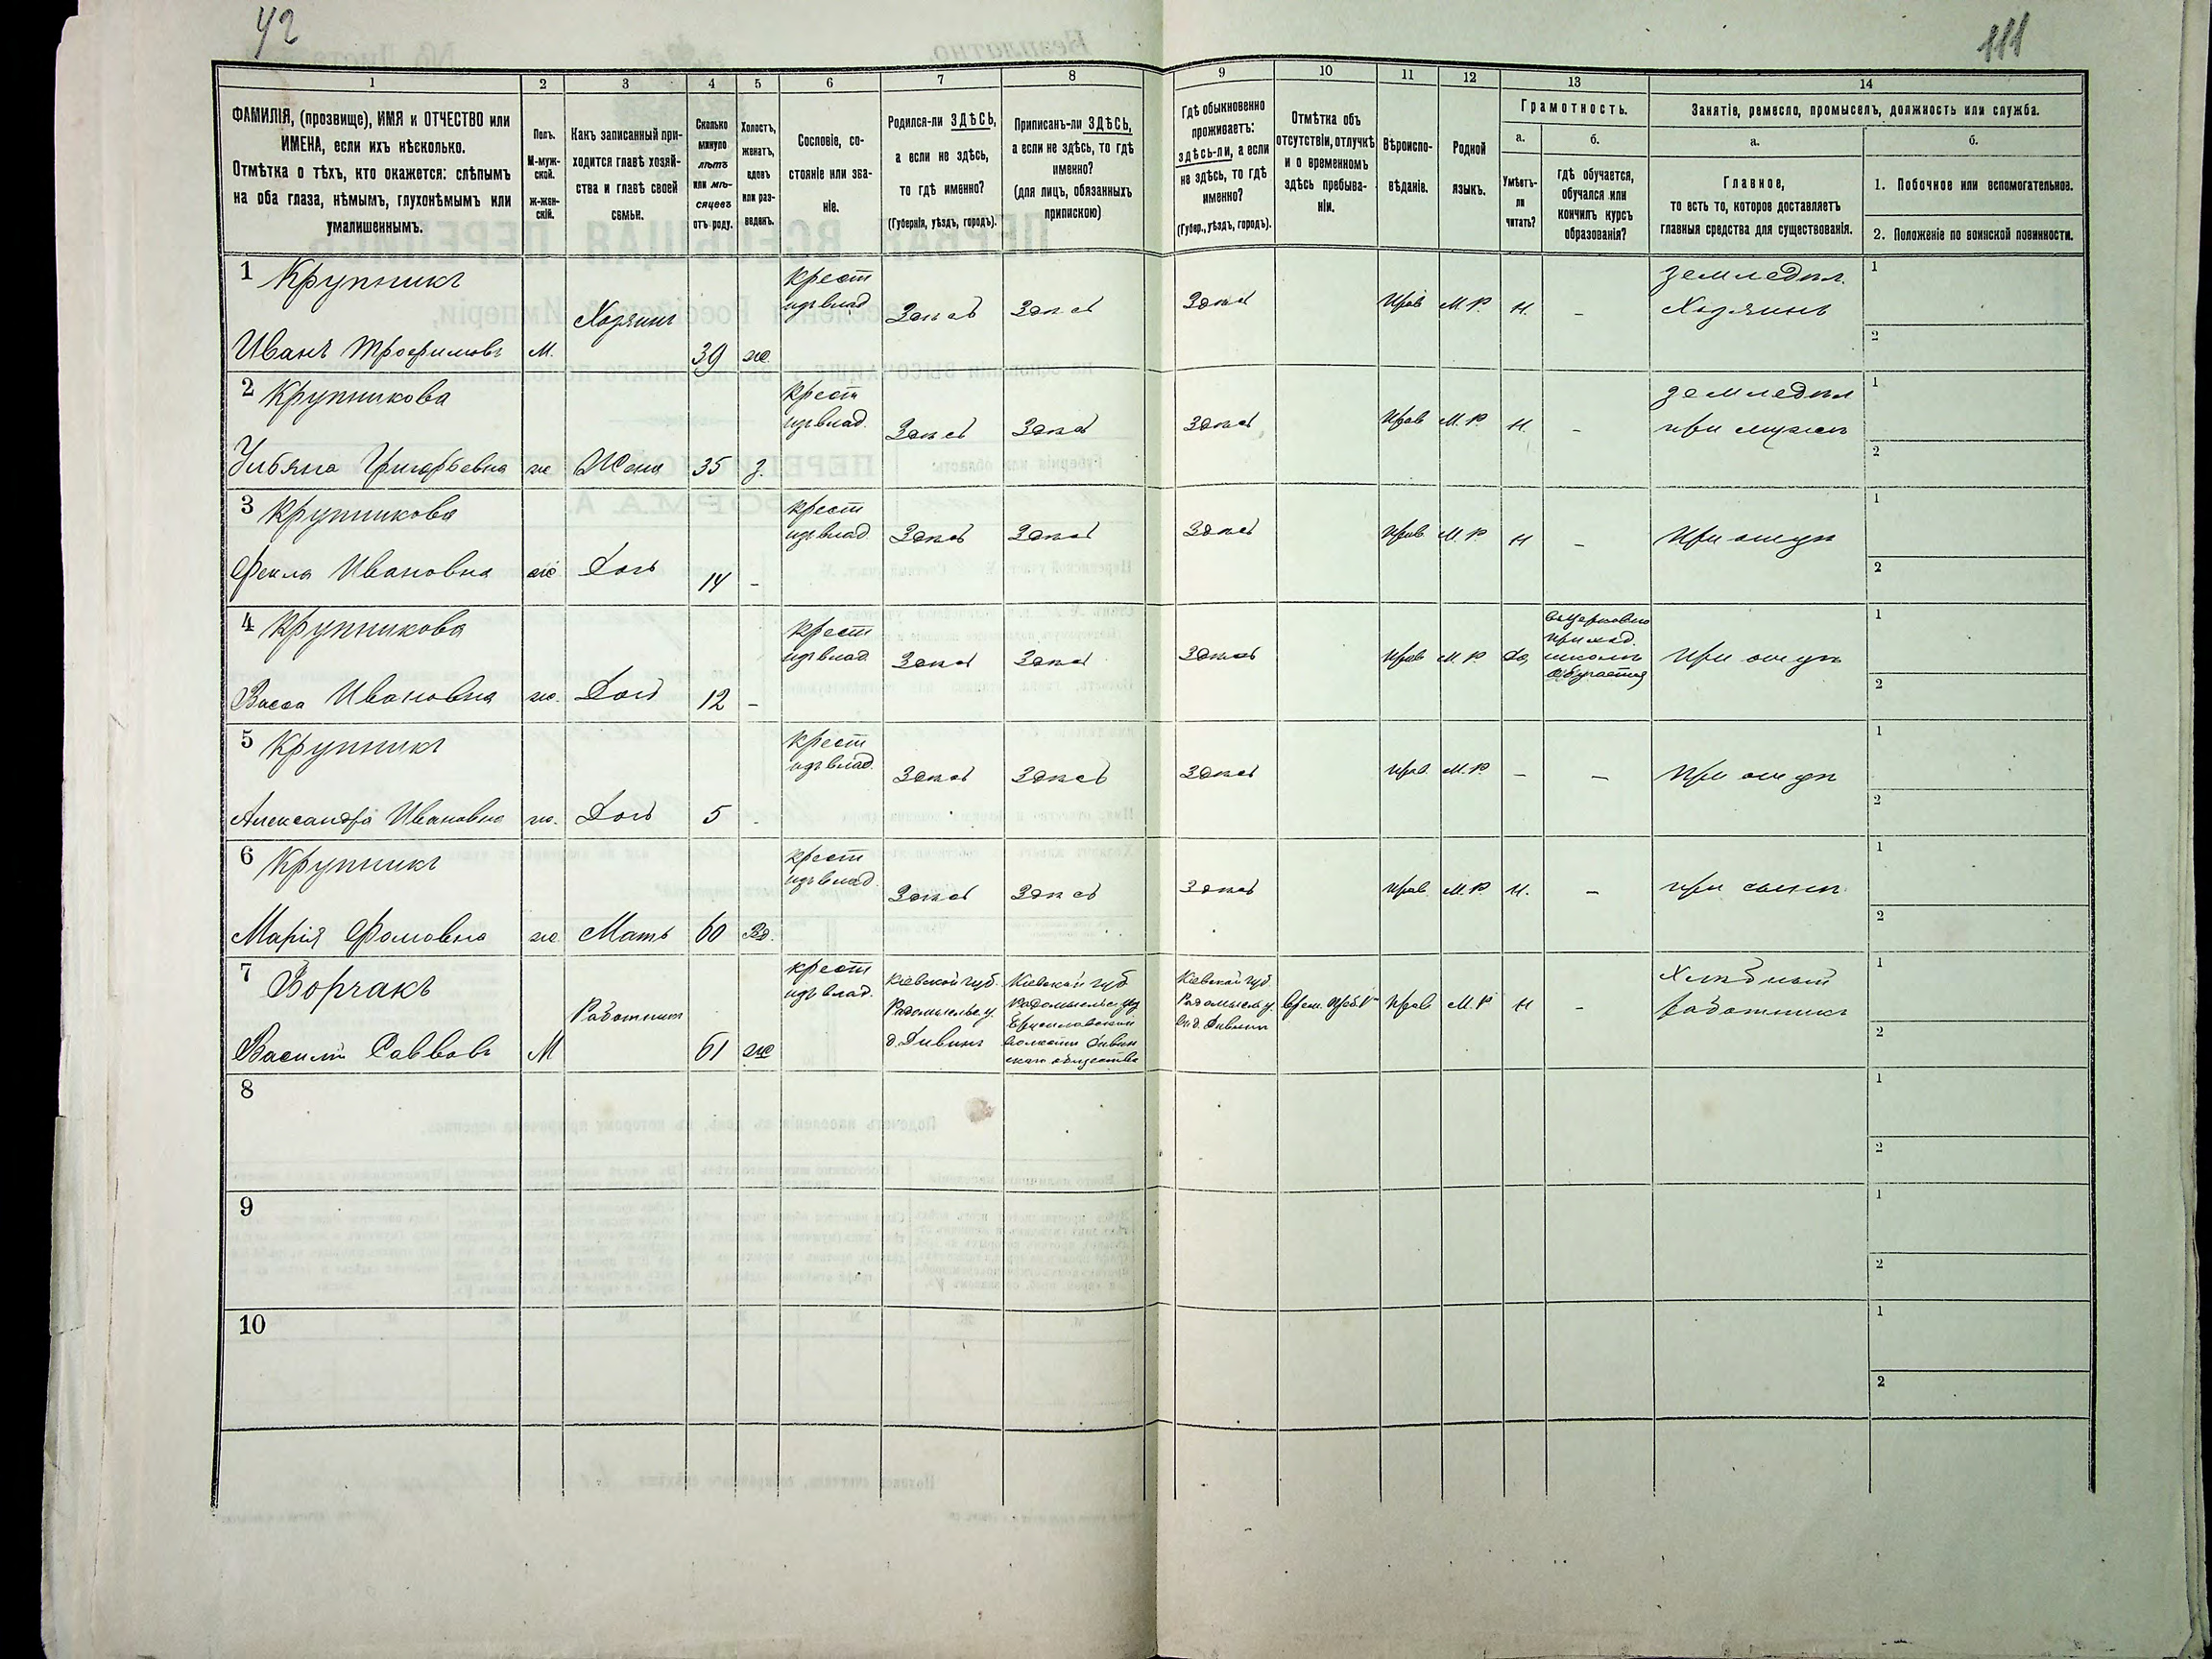 42
111
1
2
3
4
5
6
7
8
9
10
11
12
13
14
ФАМИЛІЯ, (прозвище), ИМЯ и ОТЧЕСТВО или
ИМЕНА, если ихъ нѣсколько.
Отмѣтка о тѣхъ, кто окажется: слѣпымъ
на оба глаза, нѣмымъ, глухонѣмымъ или
умалишеннымъ.
Полъ.
М-муж-
ской.
ж-жен-
скій.
Какъ записанный при-
ходится главѣ хозяй-
ства и главѣ своей
семьи.
Сколько
минуло
лѣтъ
или мѣ-
сяцевъ
отъ роду.
Холостъ,
женатъ,
вдовъ
или раз-
веденъ.
Сословіе, со-
стояніе или зва-
ніе.
Родился-ли ЗДѢСЬ,
а если не здѣсь,
то гдѣ именно?
(Губернія, уѣздъ, городъ).
Приписанъ-ли ЗДѢСЬ,
а если не здѣсь, то гдѣ
именно?
(для лицъ, обязанныхъ
припискою)
Гдѣ обыкновенно
проживаетъ:
здѣсь-ли, а если
не здѣсь, то гдѣ
именно?
(Губер., уѣздъ, городъ).
Отмѣтка объ
отсутствіи, отлучкѣ
и о временномъ
здѣсь пребыва-
ніи.
Вѣроиспо-
вѣданіе.
Родной
языкъ.
Грамотность.
а.
Умѣетъ-
ли
читать?
б.
гдѣ обучается,
обучался или
кончилъ курсъ
образованія?
Занятіе, ремесло, промыселъ, должность или служба.
а.
Главное,
то есть то, которое доставляетъ
главныя средства для существованія.
б.
1. Побочное или вспомогательное.
2. Положеніе по воинской повинности.
1 Крупникъ
Иванъ Трофимовъ
М.
Хозяинъ
39
ж.
крест
изъ влад
Здѣсь
Здѣсь
Здѣсь
Прав
М. Р.
Н.
-
земледѣл.
Хозяинъ
1
2
2 Крупникова
Ульяна Григорьевна
ж
Жена
35
з.
крест
изъ влад.
Здѣсь
Здѣсь
Здѣсь
Прав
М. Р.
Н.
-
земледѣл
при мужѣ
1
2
3 Крупникова
Фекла Ивановна
ж
Дочь
14
-
крест
изъ влад
Здѣсь
Здѣсь
Здѣсь
Прав
М. Р.
Н
-
При отцѣ
1
2
4 Крупникова
Васса Ивановна
ж.
Дочь
12
-
крест
изъ влад
Здѣсь
Здѣсь
Здѣсь
Прав
М. Р.
Да,
въ церковно
приход.
школѣ
обучается
При отцѣ
1
2
5 Крупникъ
Александра Ивановна
ж.
Дочь
5
-
крест
изъ влад.
Здѣсь
Здѣсь
Здѣсь
Прав.
М. Р.
-
-
При отцѣ
1
2
6 Крупникъ
Марія Фомовна
ж
Мать
60
Вд.
крест
изъ влад.
Здѣсь
Здѣсь
Здѣсь
Прав
М. Р.
Н.
-
при сынѣ
1
2
7 Борчакъ
Василій Саввовъ
М
Работникъ
61
ж
крест
изъ влад.
Кіевской губ.
Радомысльс. у.
д. Дивинъ
Кіевской губ
Радомысльс. уѣз
волости Дивин
скаго общества
Кіевской губ.
Радомысль. у.
въ д. Дивинѣ
врем. преб.
Прав
М. Р
Н
-
Хлѣбный
работникъ
1
2
8
1
2
9
1
2
10
1
2